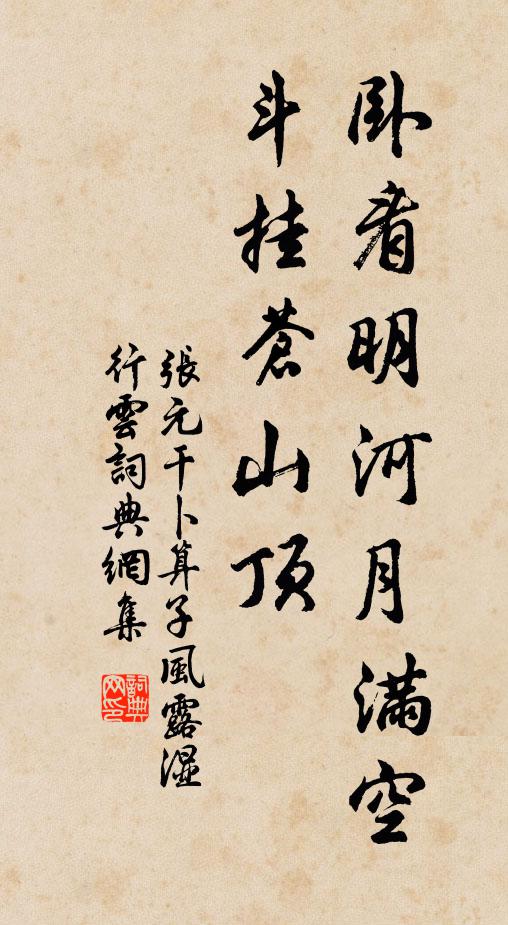 卧看明河月满空
斗挂苍山顶
張元干卜算子風露湿
行雲詞典網集
詞典
网印